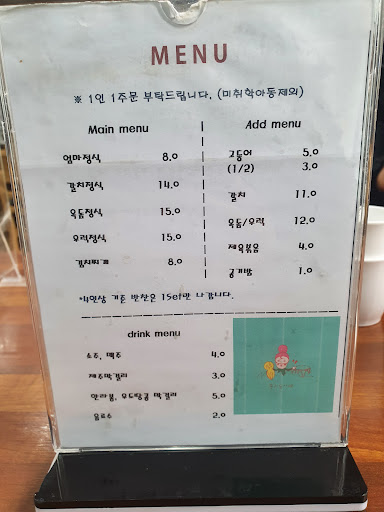 MENU
※ 1인 1주문 부탁드립니다. (미취학아동제외)
Main menu
엄마정식 8.0
갈치정식 14.0
옥돔정식 15.0
우럭정식 15.0
김치찌개 8.0
Add menu
고등어 5.0
(1/2) 3.0
갈치 11.0
옥돔/우럭 12.0
제육볶음 4.0
공기밥 1.0
*4인상 기준 반찬은 1set만 나갑니다.
drink menu
소주, 맥주 4.0
제주막걸리 3.0
한라봉, 우도땅콩 막걸리 5.0
음료수 2.0